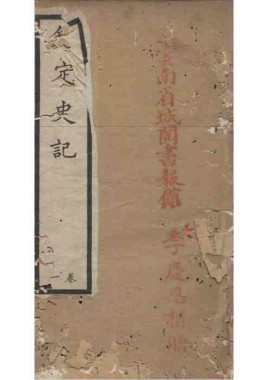 欽定史記
卷一
雲南省城閱書報館
李